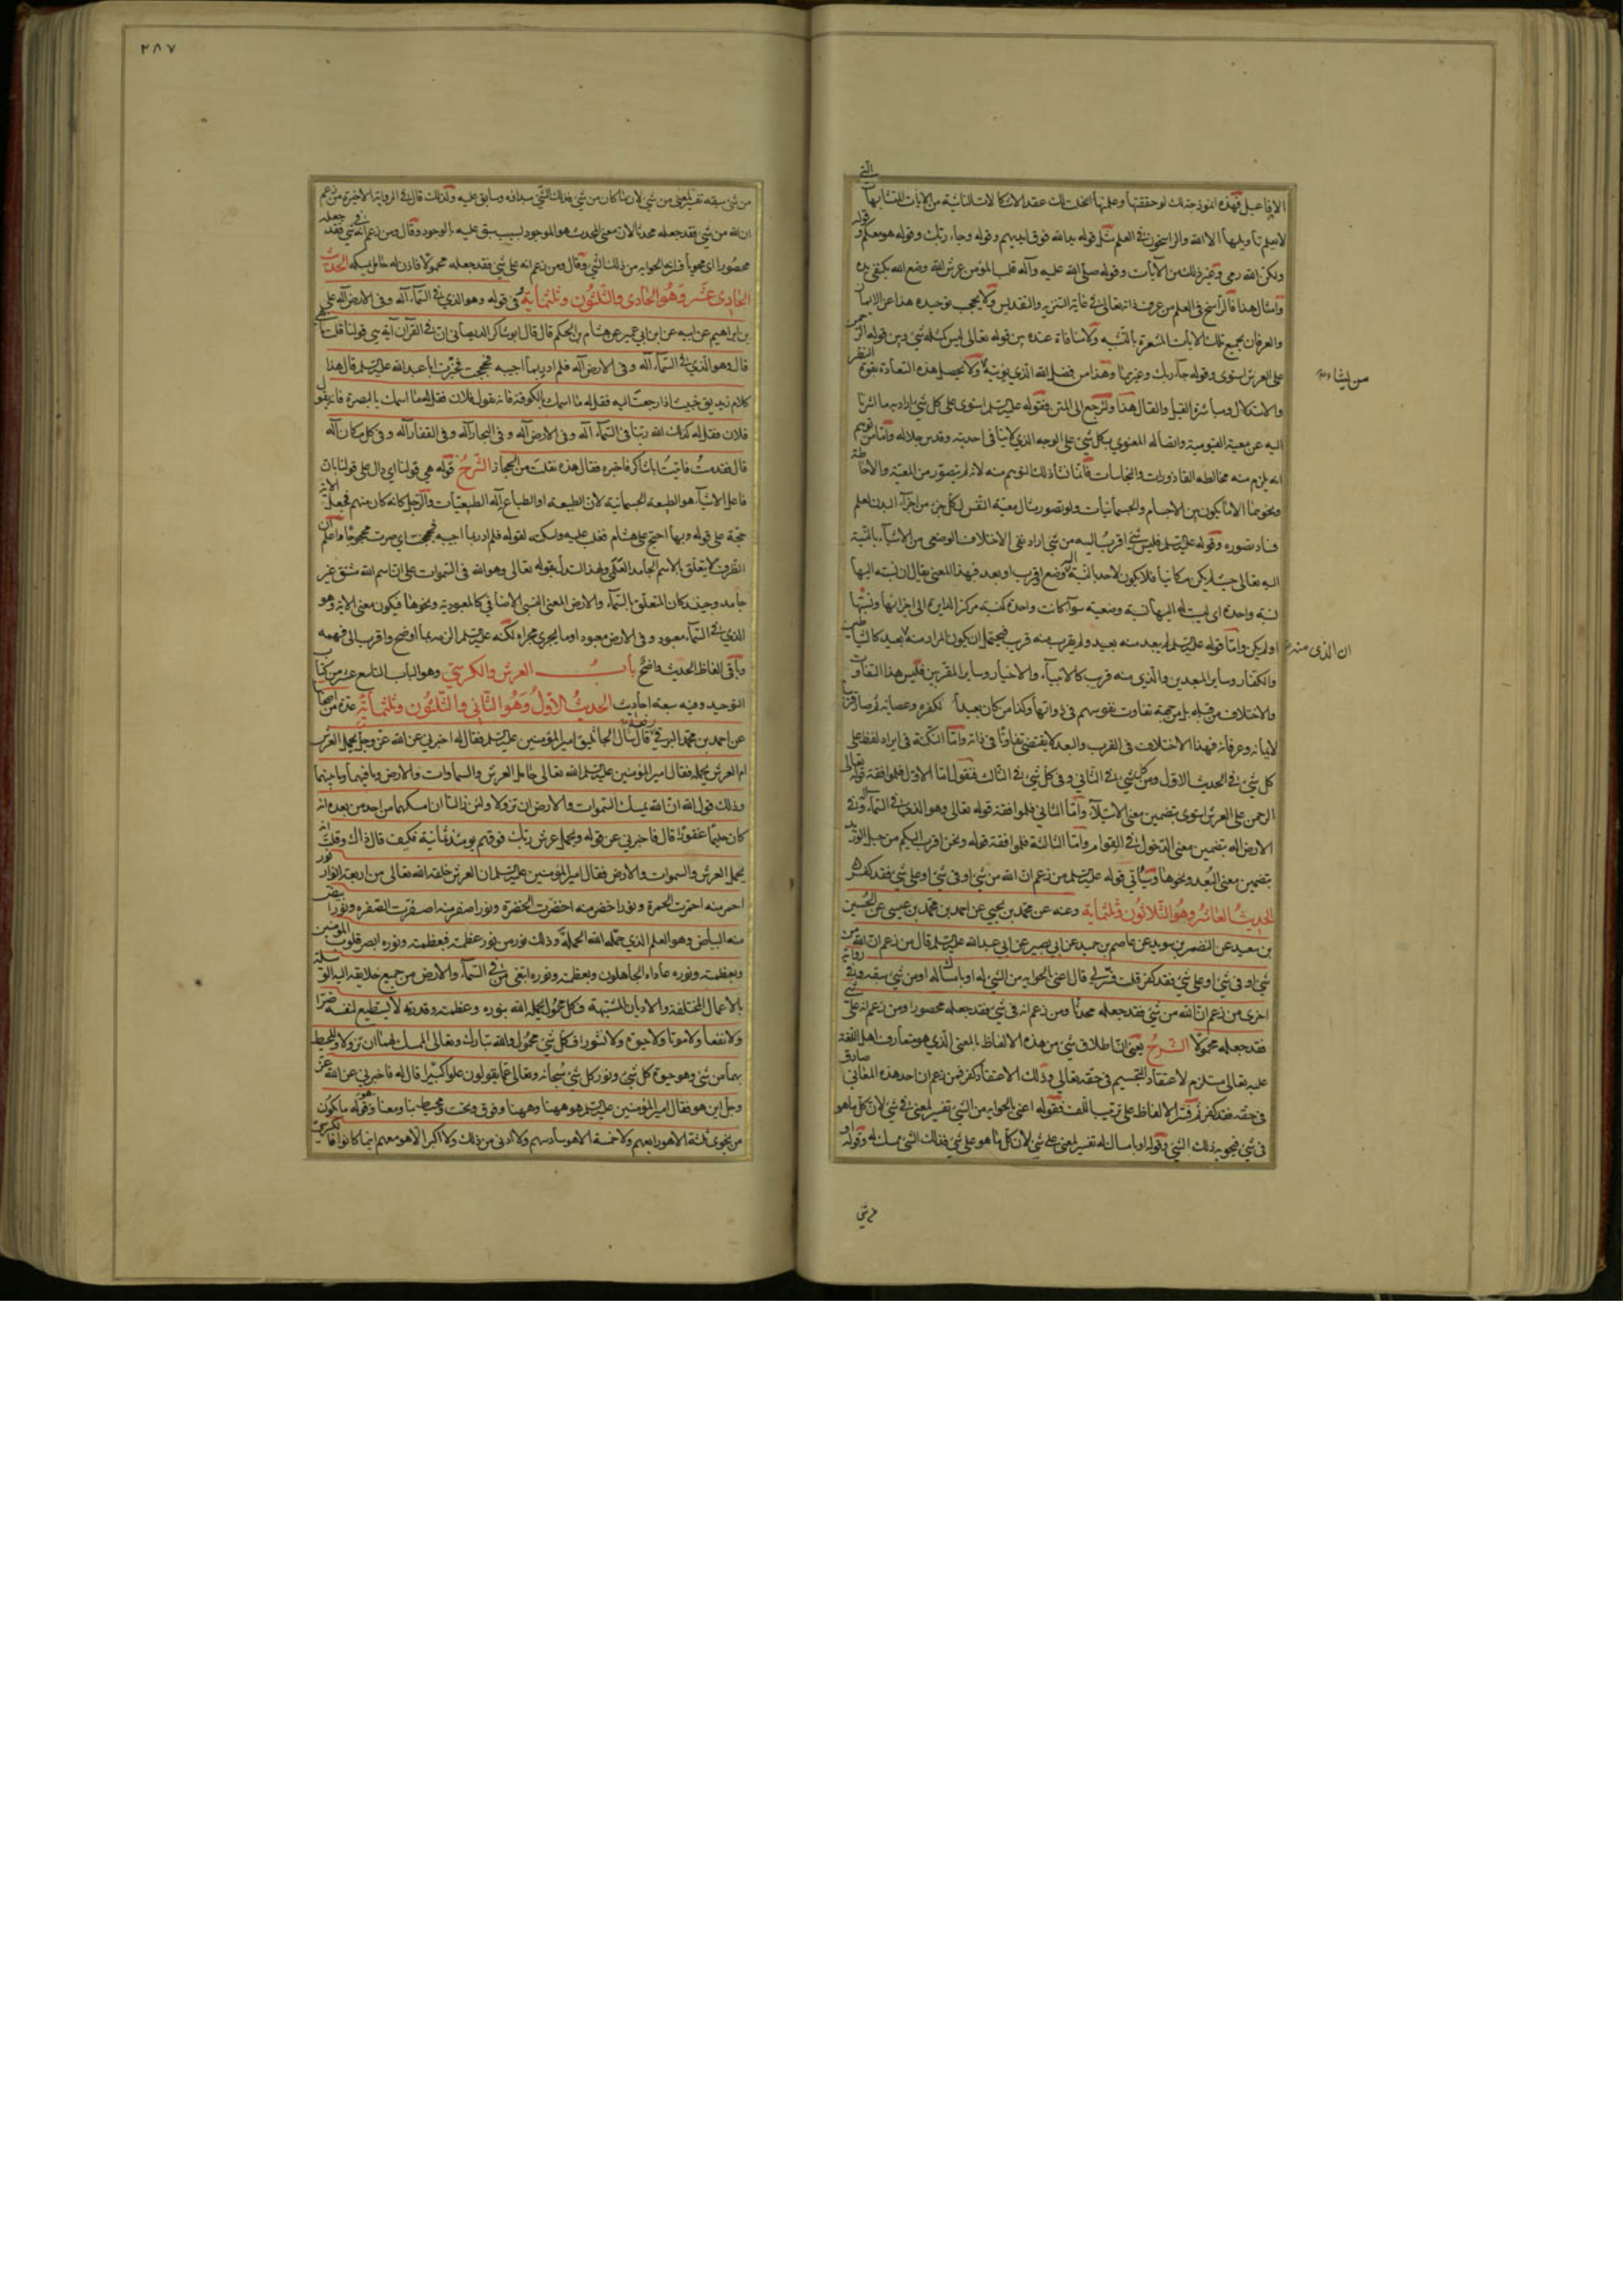 الافاعيل فهذه انموذجة لك لو حققتها وعلمتها انحلت لك عقد الاشكالات الناشئة من الايات المتشابهات التي
لا يعلم تأويلها الا الله والراسخون في العلم مثل قوله يد الله فوق ايديهم وقوله وجاء ربك وقوله هو معكم وقوله
ولكن الله رمى وغير ذلك من الآيات وقوله صلى الله عليه وآله قلب المؤمن عرش الله وضع الله بكتفي يده
وامثال هذا فالراسخ في العلم من عرف ذاته تعالى في غاية التنزيه والتقديس ولا يحجب توحيده هذا عن الايمان
والعرفان بجميع تلك الايات المشعرة بالتشبيه ولا منافاة عنده بين قوله تعالى ليس كمثله شيء وبين قوله الرحمن
على العرش استوى وقوله جاء ربك وغيرها وهذا من فضل الله الذي يؤتيه ولا يحصل هذه السعادة بقوة النظر
من يشاء
والاستدلال ومباشرة القيل والقال هذا ولنرجع الى المتن فقوله عليه السلم استوى على كل شيء اراد به ما اشرنا
اليه عن معية القيومية واتصاله المعنوي بكل شيء على الوجه الذي لا ينافي احديته وقدس جلاله واما من توهم
انه يلزم منه مخالطة القاذورات والنجاسات فانما نشأ ذلك التوهم منه لانه لم يتصور من المعية والاحاطة
ونحوها الا ما يكون بين الاجسام والجسمانيات ولو تصور مثال معية النفس لكل جزء من اجزاء البدن لعلم
فساد تصوره وقوله عليه السلم فليس شيء اقرب اليه من شيء اراد نفي الاختلاف الوضعي من الاشياء بالنسبة
اليه تعالى حيث لم يكن مكانيا فلا يكون لاحد بالنسبة اليه وضع اقرب او بعد فبهذا المعنى يقال ان نسبته اليها
نسبة واحدة اي ليست له اليها نسبة وضعية سواء كانت واحدة كنسبة مركز الدايرة الى اجزائها ونسبتها
اولم يكن واما قوله عليه السلم لم يبعد منه بعيد ولم يقرب منه قريب فيحتمل ان يكون المراد منه بعيد كالشياطين
ان الذي منه
والكفار وساير المبعدين والذي منه قريب كالانبياء والاخيار وساير المقربين فليس هذا التفاوت
والاختلاف من قبله بل من جهة تفاوت نفوسهم في ذواتها وكذا من كان بعيدا لكفره وعصيانه ثم صار قريبا
لايمانه وعرفانه فهذا الاختلاف في القرب والبعد لا يقتضي تفاوتا في ذاته واما النكتة في ايراد لفظ على
كل شيء في الحديث الاول ومن كل شيء في الثاني وفي كل شيء في الثالث فنقول اما الاول فلموافقة قوله تعالى
الرحمن على العرش استوى بتضمين معنى الاستيلاء واما الثاني فلموافقة قوله تعالى وهو الذي في السماء اله وفي
الارض اله بتضمين معنى الدخول في القوام واما الثالثة فلموافقة قوله ونحن اقرب اليكم من حبل الوريد
بتضمين معنى البعد ونحوها وسيأتي قوله عليه السلم من زعم ان الله من شيء او في شيء او على شيء فقد كفر
الحديث العاشر وهو الثلاثون وثلثماية وعنه عن محمد بن يحيى عن احمد بن محمد بن عيسى عن الحسين
بن سعيد عن النضر بن سويد عن عاصم بن حميد عن ابي بصير عن ابي عبد الله عليه السلم قال من زعم ان الله من
شيء او في شيء او على شيء فقد كفر قلت فسر لي قال اعني بالحواية من الشيء له او بامساك له او من شيء سبقه وفي رواية
اخرى من زعم ان الله من شيء فقد جعله محدثا ومن زعم انه في شيء فقد جعله محصورا ومن زعم انه على شيء
فقد جعله محمولا الشرح يعني ان اطلاق شيء من هذه الالفاظ بالمعنى الذي هو متعارف اهل اللغة
عليه تعالى مستلزم لاعتقاد التجسيم في حقه تعالى وذلك الاعتقاد كفر فمن زعم ان احد هذه المعاني صادق
في حقه فقد كفر ثم فسر الالفاظ على ترتيب اللف فقوله اعني بالحواية من الشيء تفسير لمعنى في شيء لان كل ما هو
في شيء فيحويه ذلك الشيء وقوله او بامساك له تفسير لمعنى على شيء لان كل ما هو على شيء فذلك الشيء يمسك له وقوله او
من شيء
٢٨٧
من شيء سبقه تفسير لمعنى من شيء لان ما كان من شيء فذلك الشيء مبدأه وسابق عليه ولذلك قال في الرواية الاخيرة من زعم
ان الله من شيء فقد جعله محدثا لان معنى المحدث هو الموجود بسبب سبق عليه بالوجود وقال ومن زعم انه في شيء فقد جعله
محصورا اي محويا فله الحواية من ذلك الشيء وقال ومن زعم انه على شيء فقد جعله محمولا فاذن له حامل يمسكه الحديث
الحادى عشر وهو الحادى والثلثون وثلثماية في قوله وهو الذي في السماء اله وفي الارض اله علي
بن ابراهيم عن ابيه عن ابن ابي عمير عن هشام بن الحكم قال قال ابو شاكر الديصاني ان في القرآن آية هي قولنا قلت ما هي
قال وهو الذي في السماء اله وفي الارض اله فلم ادر بما اجيبه فحججت فخبرت ابا عبد الله عليه السلم قال هذا
كلام زنديق خبيث اذا رجعت اليه فقل له ما اسمك بالكوفة فانه يقول فلان فقل له ما اسمك بالبصرة فانه يقول
فلان فقل له كذلك الله ربنا في السماء اله وفي الارض اله وفي البحار اله وفي القفار اله وفي كل مكان اله
قال فقدمت فاتيت ابا شاكر فاخبرته فقال هذه نقلت من الحجاز الشرح قوله هي قولنا اي دال على قولنا بان
فاعل الاشياء هو الطبيعة الجسمانية لان الطبيعة او الطباع عن آلهة الطبيعيات والرجل كانه كان منهم فجعل الآية
حجة على قوله وبها احتج على هشام فغلب عليه وسكته لقوله فلم ادر بما اجيبه فحججت اي صرت محجوجا واعلم ان
الظرف لا يتعلق بالاسم الجامد العلمي ولهذا استدل بقوله تعالى وهو الله في السموات على ان اسم الله مشتق غير
جامد وحينئذ كان المتعلق بالسماء والارض المعنى النسبي الاضافي كالمعبودية ونحوها فيكون معنى الاية وهو
الذي في السماء معبود وفي الارض معبود او ما يجري مجراه لكنه عليه السلم الزمه بما اوضح واقرب الى فهمه
وباقى الفاظ الحديث واضح باب العرش والكرسي وهو الباب التاسع عشر من كتاب
التوحيد وفيه سبعة احاديث الحديث الاول وهو الثانى والثلثون وثلثماية عدة من اصحابنا
عن احمد بن محمد البرقي رفعه قال سأل الجاثليق امير المؤمنين عليه السلم فقال له اخبرني عن الله عز وجل يحمل العرش
ام العرش يحمله فقال امير المؤمنين عليه السلم الله تعالى حامل العرش والسماوات والارض وما فيهما وما بينهما
وذلك قول الله ان الله يمسك السموات والارض ان تزولا ولئن زالتا ان امسكهما من احد من بعده انه
كان حليما غفورا قال فاخبرني عن قوله ويحمل عرش ربك فوقهم يومئذ ثمانية فكيف قال ذاك وقلت انه
يحمل العرش والسموات والارض فقال امير المؤمنين عليه السلم ان العرش خلقه الله تعالى من اربعة انوار نور
احمر منه احمرت الحمرة ونور اخضر منه اخضرت الخضرة ونور اصفر منه اصفرت الصفرة ونور ابيض
منه البياض وهو العلم الذي حمله الله الحملة وذلك نور من نور عظمته فبعظمته ونوره ابصر قلوب المؤمنين
وبعظمته ونوره عاداه الجاهلون وبعظمته ونوره ابتغى من في السماء والارض من جميع خلايقه اليه الوسيلة
بالاعمال المختلفة والاديان المشتبهة فكل محمول يحمله الله بنوره وعظمته وقدرته لا يستطيع لنفسه ضرا
ولا نفعا ولا موتا ولا حيوة ولا نشورا فكل شيء محمول والله تبارك وتعالى الممسك لهما ان تزولا والمحيط
بهما من شيء وهو حيوة كل شيء ونور كل شيء سبحانه وتعالى عما يقولون علوا كبيرا قال له فاخبرني عن الله عز
وجل اين هو فقال امير المؤمنين عليه السلم هو ههنا وههنا وفوق وتحت ومحيط بنا ومعنا وهو قوله ما يكون
من نجوى ثلثة الا هو رابعهم ولا خمسة الا هو سادسهم ولا ادنى من ذلك ولا اكثر الا هو معهم اينما كانوا فالكرسي